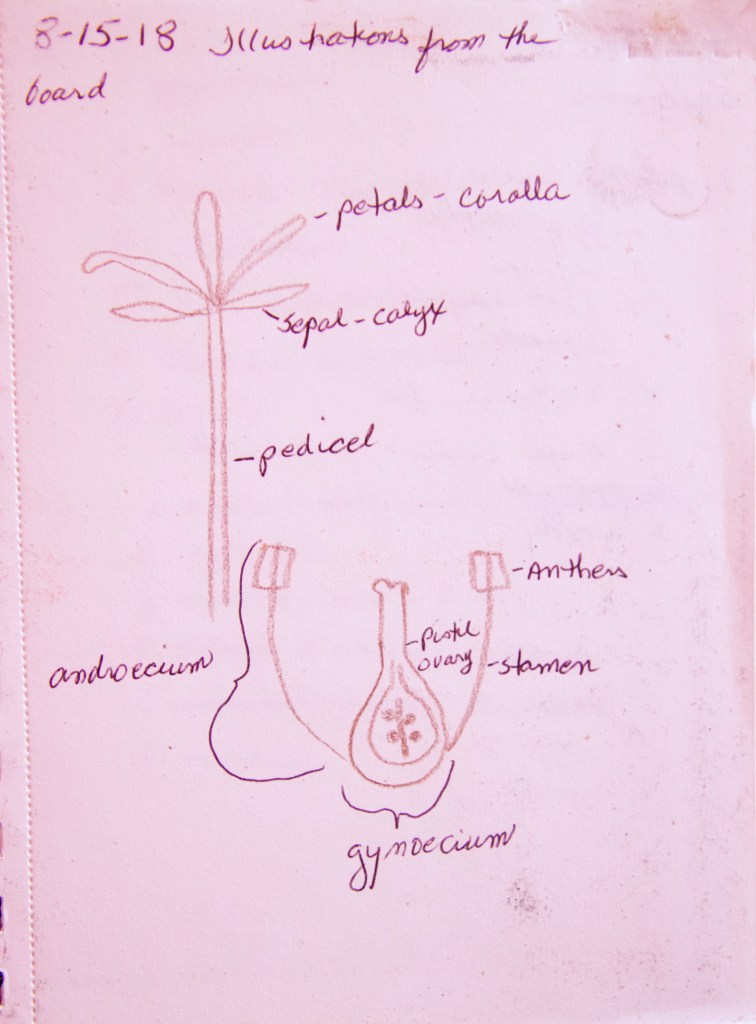 8-15-18 Illustrations from the
board
- petals - corolla
sepal - calyx
- pedicel
- Anthers
- pistil
ovary
- stamen
androecium
gynoecium